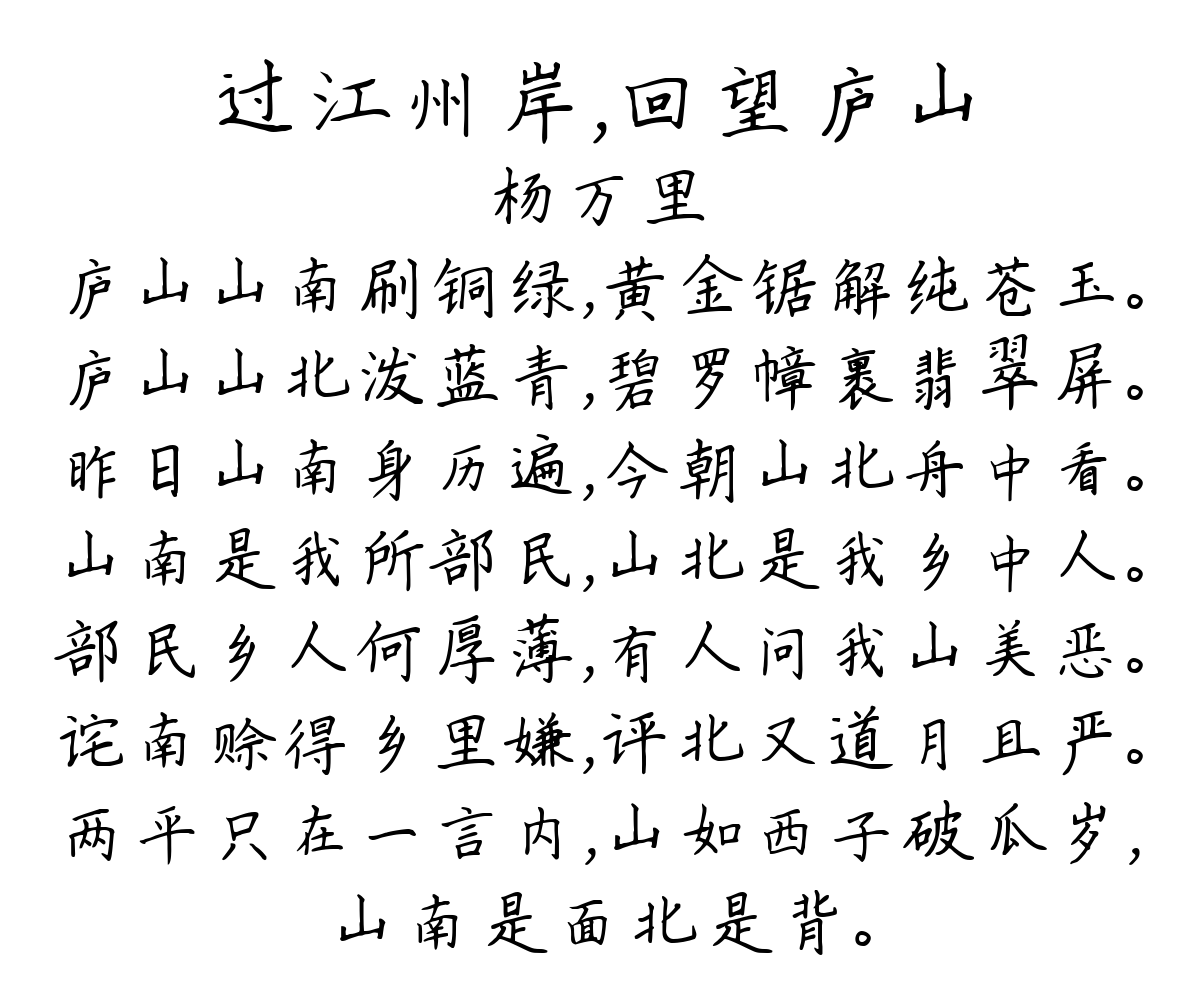 过江州岸,回望庐山
杨万里
庐山山南刷铜绿,黄金锯解纯苍玉。
庐山山北泼蓝青,碧罗幛裹翡翠屏。
昨日山南身历遍,今朝山北舟中看。
山南是我所部民,山北是我乡中人。
部民乡人何厚薄,有人问我山美恶。
诧南赊得乡里嫌,评北又道月且严。
两平只在一言内,山如西子破瓜岁,
山南是面北是背。